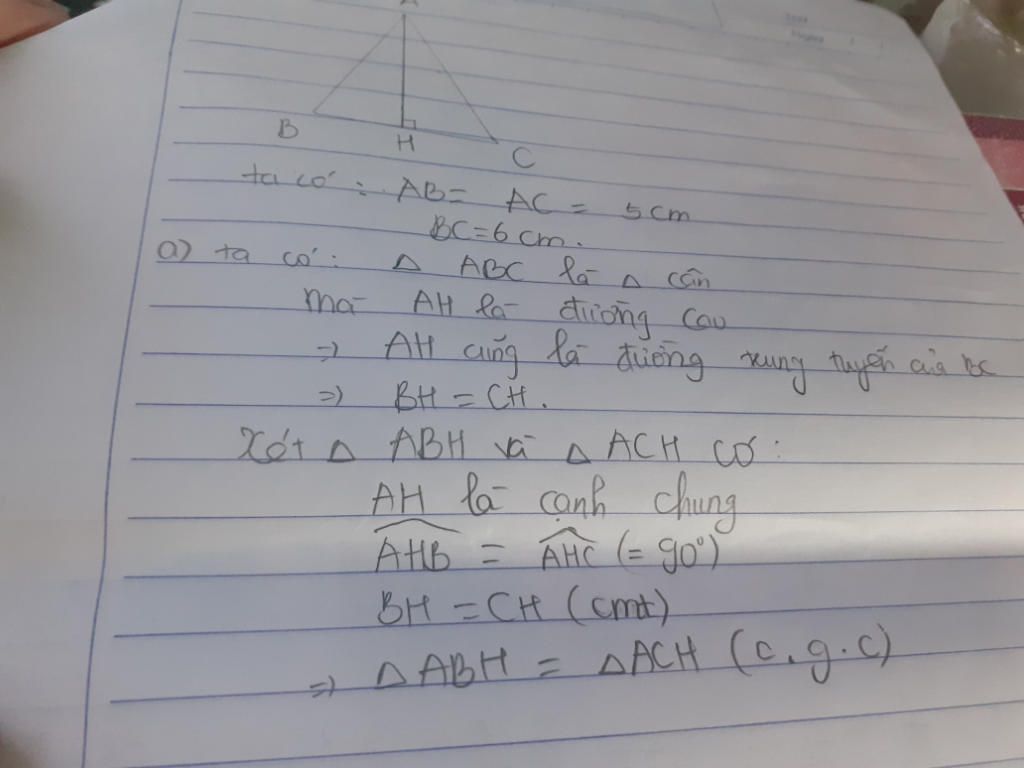 A
B
H
C
ta có: AB = AC = 5 cm
BC = 6 cm.
a) ta có: Δ ABC là Δ cân
mà AH là đường cao
=> AH cũng là đường trung tuyến của BC
=> BH = CH.
Xét Δ ABH và Δ ACH có:
AH là cạnh chung
AHB = AHC (= 90°)
BH = CH (cmt)
=> Δ ABH = Δ ACH (c.g.c)